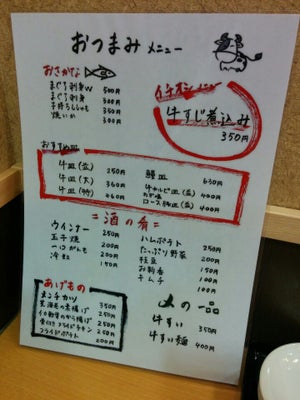 おつまみ メニュー
おさかな
まぐろ刺身W 500円
まぐろ刺身 300円
子持ちししゃも 350円
焼いか 300円
イチオシメニュー
牛すじ煮込み
350円
おすすめ皿
牛皿(並) 250円
牛皿(大) 360円
牛皿(特) 460円
鰻皿 630円
牛カルビ皿(並) 400円
ロース豚皿(並) 400円
=酒の肴=
ウインナー 250円
玉子焼 200円
一口がんも 200円
冷奴 150円
ハムポテト 250円
たっぷり野菜 200円
枝豆 150円
お新香 100円
キムチ 100円
あげもの
メンチカツ 350円
イカ軟骨のから揚げ 250円
骨付きフライドチキン 250円
フライドポテト 200円
の一品
牛すい 350円
牛すい麺 400円